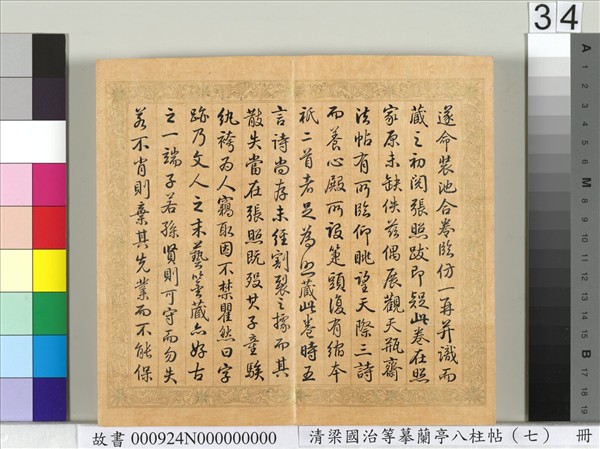 34
遂命裝池合卷臨仿一再并識而
藏之初閱張照跋即疑此卷在照
家原未缺佚茲偶展觀天瓶齋
法帖有所臨仰眺望天際三詩
而養心殿所設筆頭復有縮本
祇二首者足為照藏此卷時五
言詩尚存未經割裂之據而其
散失當在張照既歿其子童騃
紈袴為人竊取因不禁瞿然曰字
跡乃文人之末藝鑒藏亦好古
之一端子若孫賢則可守而勿失
若不肖則棄其先業而不能保
A
1
2
3
4
5
6
M
8
9
10
11
12
13
14
15
B
17
18
19
故書 000924N000000000 清梁國治等摹蘭亭八柱帖（七） 冊